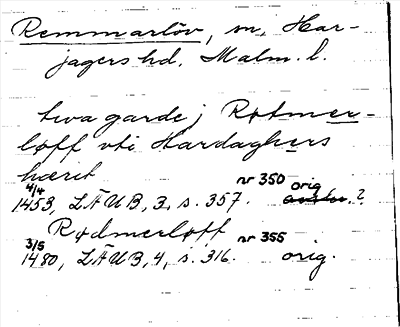 Remmarlöv, sn, Har-
jagers hd. Malm. l.
twa garde j Rødmer-
løff vti Hardaghers
hæret
4/4 1453, LÄUB, 3, s. 357. nr 350 orig. ?
Rødmerløff
3/5 1480, LÄUB, 4, s. 316. nr 355 orig.